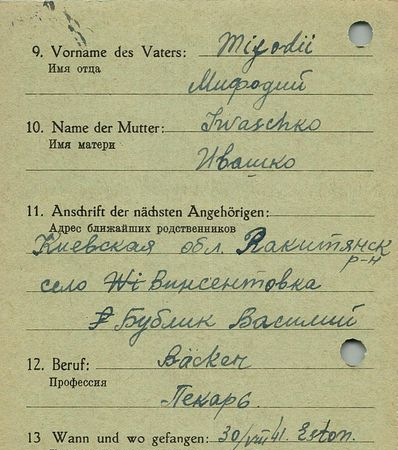 9. Vorname des Vaters: Mifodii
Имя отца
Мифодий
10. Name der Mutter: Iwaschko
Имя матери
Ивашко
11. Anschrift der nächsten Angehörigen:
Адрес ближайших родственников
Киевская обл. Ракитянск
р-н
село Винсентовка
Бублик Василий
12. Beruf: Bäcker
Профессия
Пекарь
13 Wann und wo gefangen: 30/VIII 41. Eston.